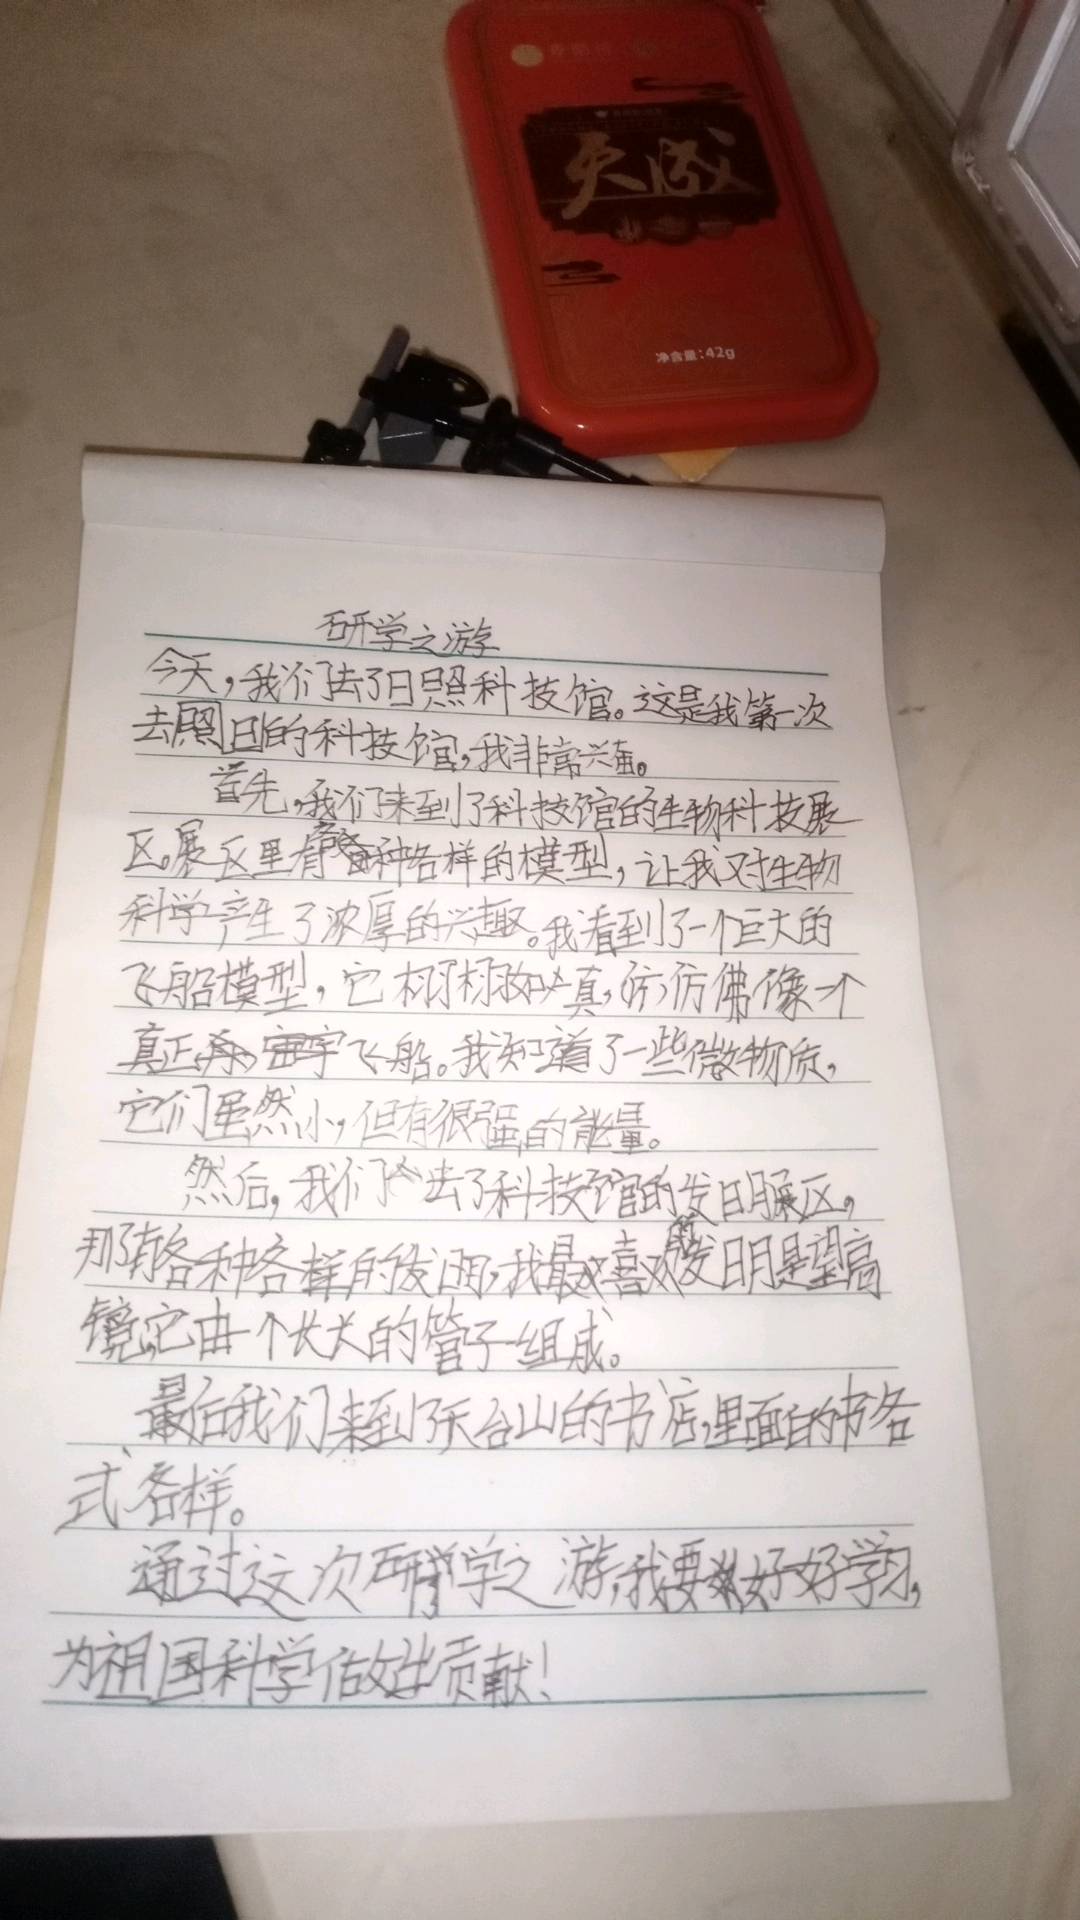 天成
净含量:42g
研学之游
今天,我们去了日照科技馆。这是我第一次
去照日的科技馆,我非常兴奋。
首先,我们来到了科技馆的生物科技展
区。展区里有各种各样的模型,让我对生物
科学产生了浓厚的兴趣。我看到了一个巨大的
飞船模型,它栩栩如真,仿仿佛像一个
真正宇飞船。我知道了一些微物质,
它们虽然小,但有很强的能量。
然后,我们去了科技馆的发明展区,
那有各种各样的发明,我最喜欢的发明是望高
镜,它由一个长长的管子组成。
最后我们来到了天台山的书店,里面的书各
式各样。
通过这次研学之游,我要好好学习,
为祖国科学做出贡献!